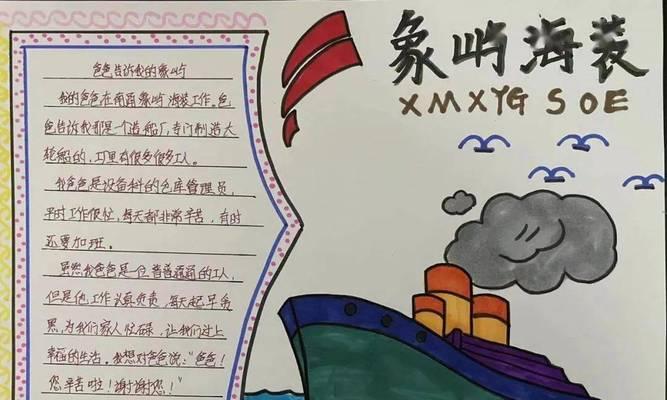 爸爸告诉我的象屿
我的爸爸在南通象屿海装工作。爸
爸告诉我那是一个造船厂,专门制造大
轮船的,工厂里有很多很多工人。
我爸爸是设备科的仓库管理员,
平时工作很忙,每天都非常辛苦,有时
还要加班。
虽然我爸爸是一位普普通通的工人,
但是他工作认真负责,每天起早贪
黑,为我们家人忙碌,让我们过上
幸福的生活。我想对爸爸说:“爸爸!
您辛苦啦!谢谢您!”
象屿海装
XMXYG SOE